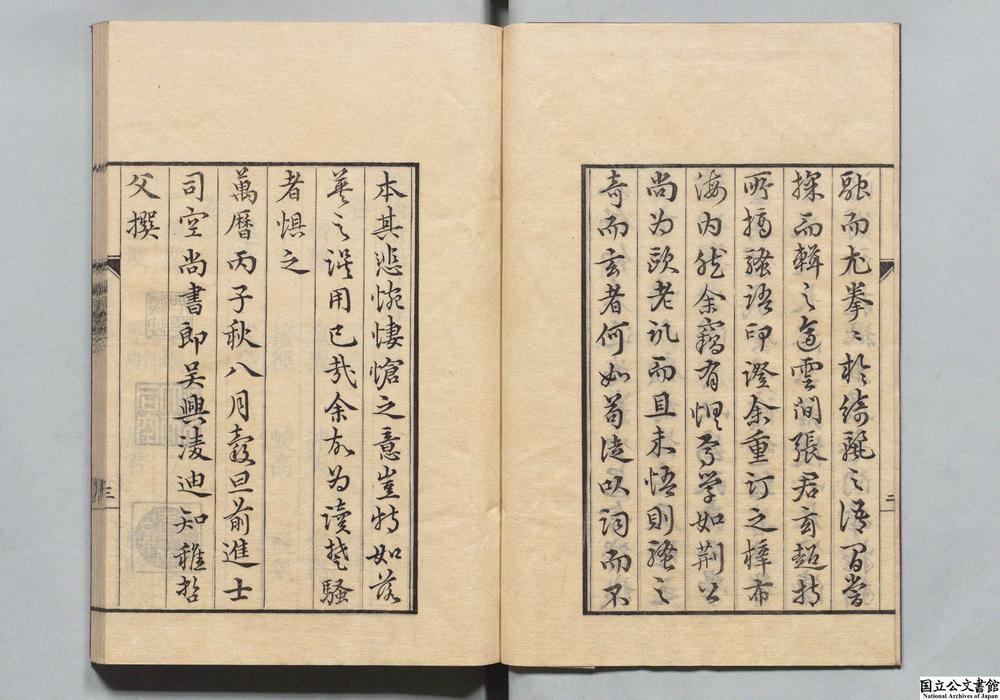 融而尤拳〻於綺麗之語間嘗
採而輯之適雲間張君玄超持
所摘騷語印證余重訂之梓布
海内然余竊有懼焉学如荆公
尚为歐老訊而且未悟則騷之
奇而玄者何如苟徒以詞而不
二
本其悲惋悽愴之意豈特如落
英之誤用已哉余故为讀楚騷
者惧之
萬曆丙子秋八月穀旦前進士
司空尚書郎吴興凌迪知稚哲
父撰
三
国立公文書館
National Archives of Japan